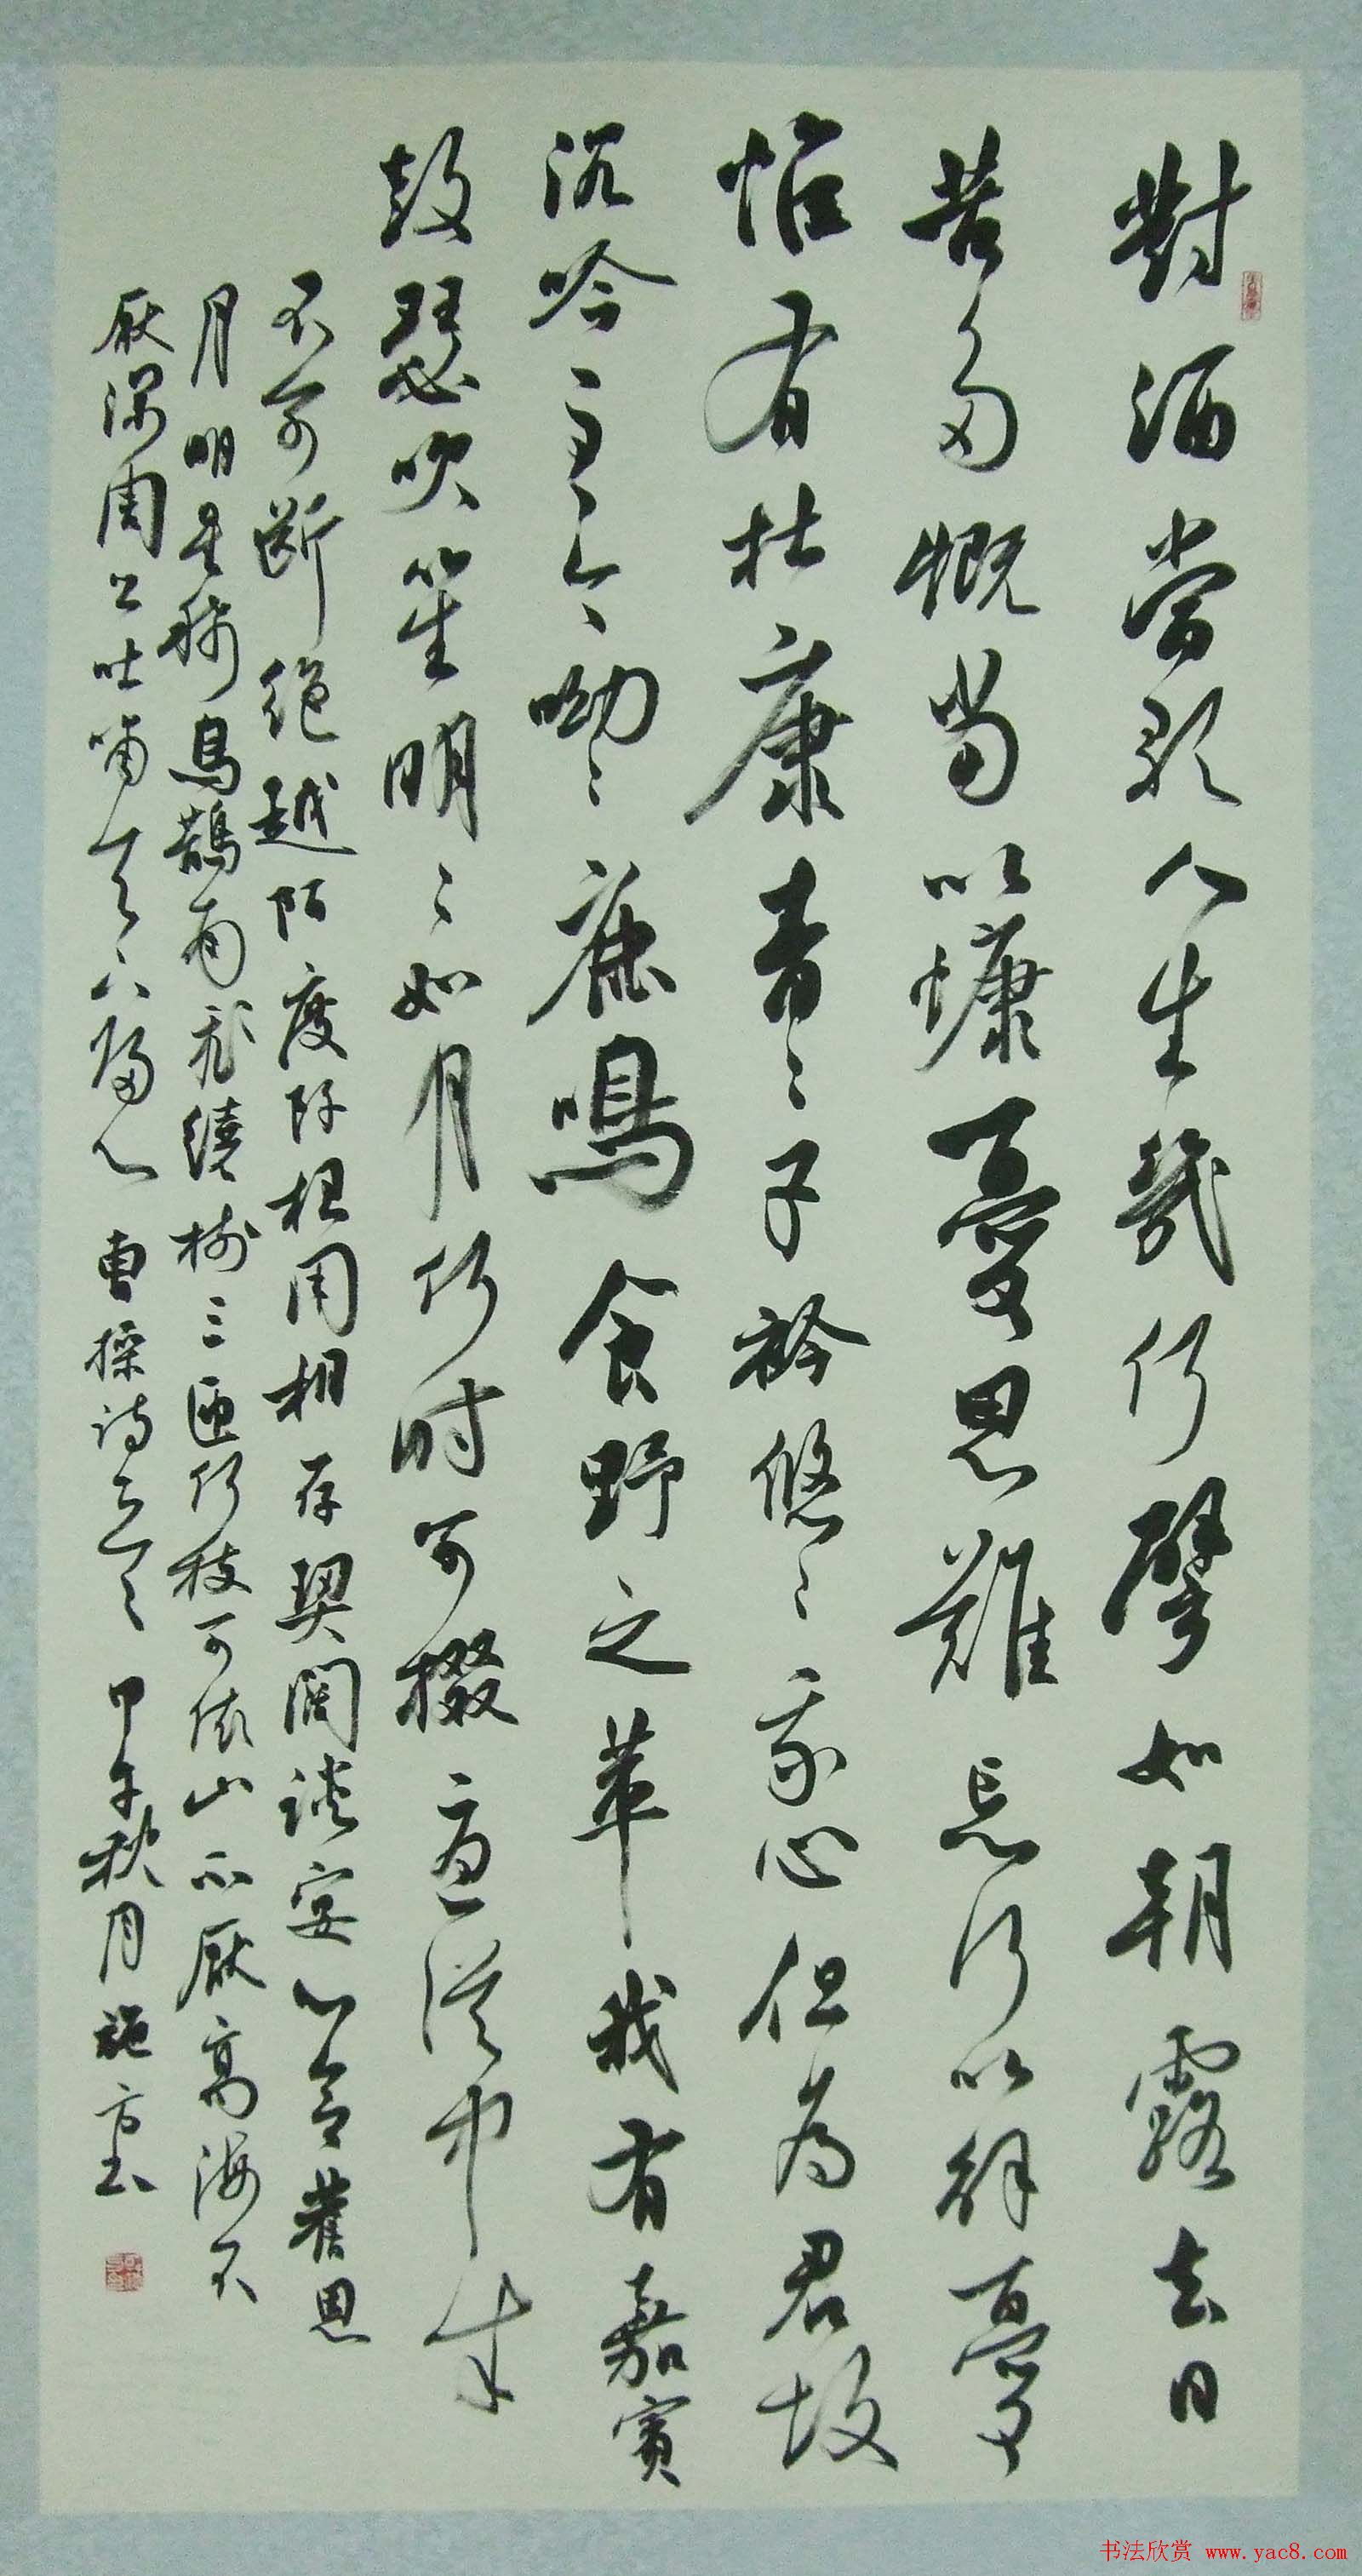 對酒當歌人生幾何譬如朝露去日
苦多慨當以慷憂思難忘何以解憂
惟有杜康青〻子衿悠〻我心但为君故
沉吟至今呦〻鹿鳴食野之苹我有嘉賓
鼓瑟吹笙明〻如月何时可掇憂從中来
不可断絕越陌度阡枉用相存契闊談宴心念舊恩
月明星稀烏鵲南飛繞樹三匝何枝可依山不厭高海不
厭深周公吐哺天下歸心 曹操诗 甲午秋月 施
书法欣赏 www.yac8.com